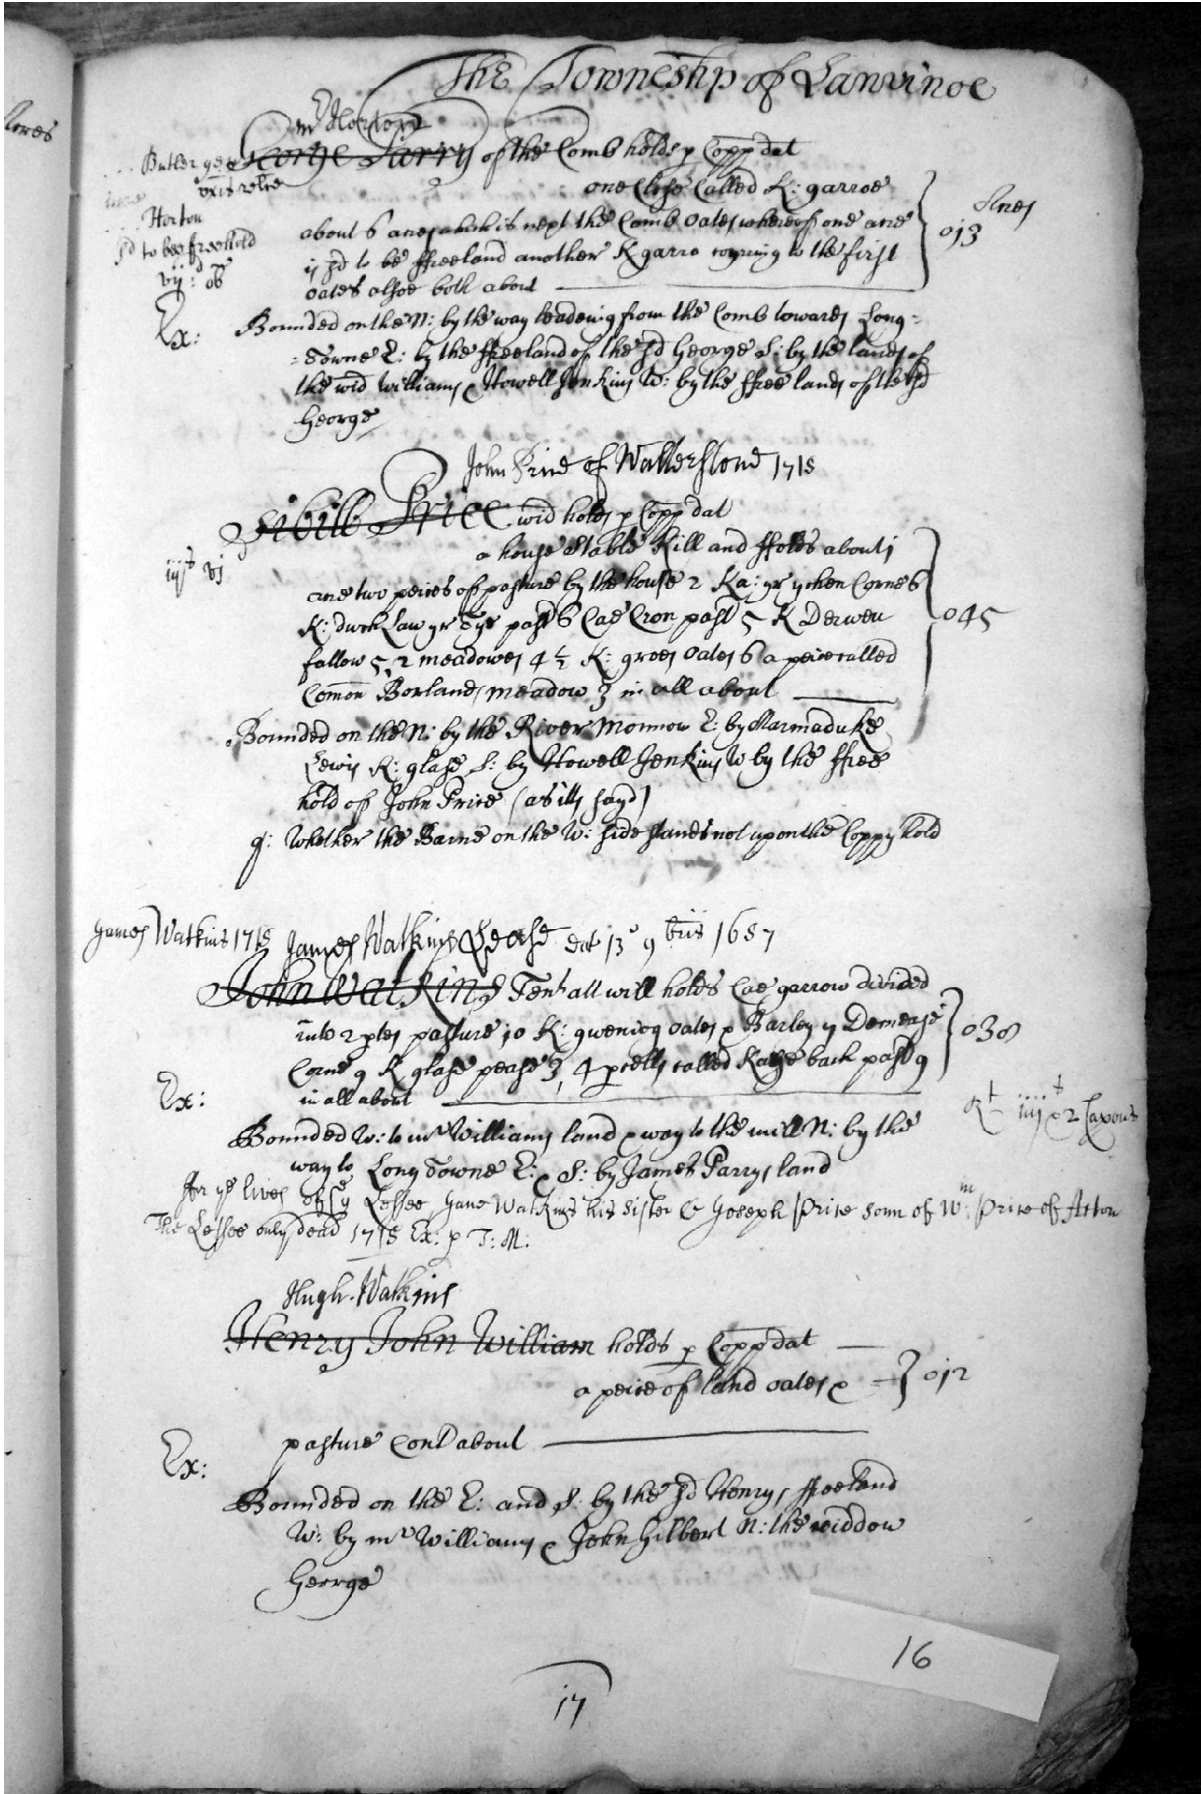 The Towneshp of Lanvinoe
Mr Horton
George Parry of the Comb holds p Copp dat
Butler gen
Horton
sd to bee freehold
vijd : ob
one Close Called K: garroe
about 6 acres which is next the Comb Oates whereof one acre
is sd to be ffreeland another K garro to the first
oates alsoe both about
013
Acres
Ex:
Bounded on the N: by the way leadeing from the Comb towards Long=
=Towne E: by the ffreeland of the sd George S: by the lands of
the wid Williams & Howell Jenkins W: by the ffree lands of the sd
George
John Price of Wallerstone 1718
Sibill Price wid holds p Copp dat
iijs vj
a house Stable Kill and ffolds about j
acre two peices of pasture by the house 2 Ka: yr ychen Corne 6
K: duch Law yr Tye past 6 Cae Cron past 5 K Derwen
fallow 5, 2 meadowes 4 ½ K: groes Oates 6 a peice called
Comon Borlands meadow 3 in all about
045
Bounded on the N: by the River Monnow E: by Marmaduke
Lewis K: glase S: by Howell Jenkins W by the ffree
hold of John Price (as its sayd)
q: Whether the Barne on the W: side stands not upon the Coppyhold
James Watkins 1718
James Watkins Lease dat 13o 9bris 1687
John Watkins Tent att will holds Cae garrow divided
into 2 ptes pasture 10 K: gweniog Oates & Barley 11 Demease
Corne 9 K glase pease 3, 4 pcells called back past 9
in all about
038
Ex:
Rt iiijs & 2 Capons
Bounded W: to mr Williams land & way to the mill N: by the
way to Long Towne E: & S: by James Parrys land
for ye lives of ye Lessee, Jane Watkins his sister & Joseph Price sonn of Wm: Price of Acton
The Lessee only dead 1718 Ex: p T: M:
Hugh Watkins
Henry John William holds p Copp dat
a peice of land oates &
012
pasture Cont about
Ex:
Bounded on the E: and S: by the sd Henrys ffreeland
W: by mr Williams & John Gilbert N: the widdow
George
16
17